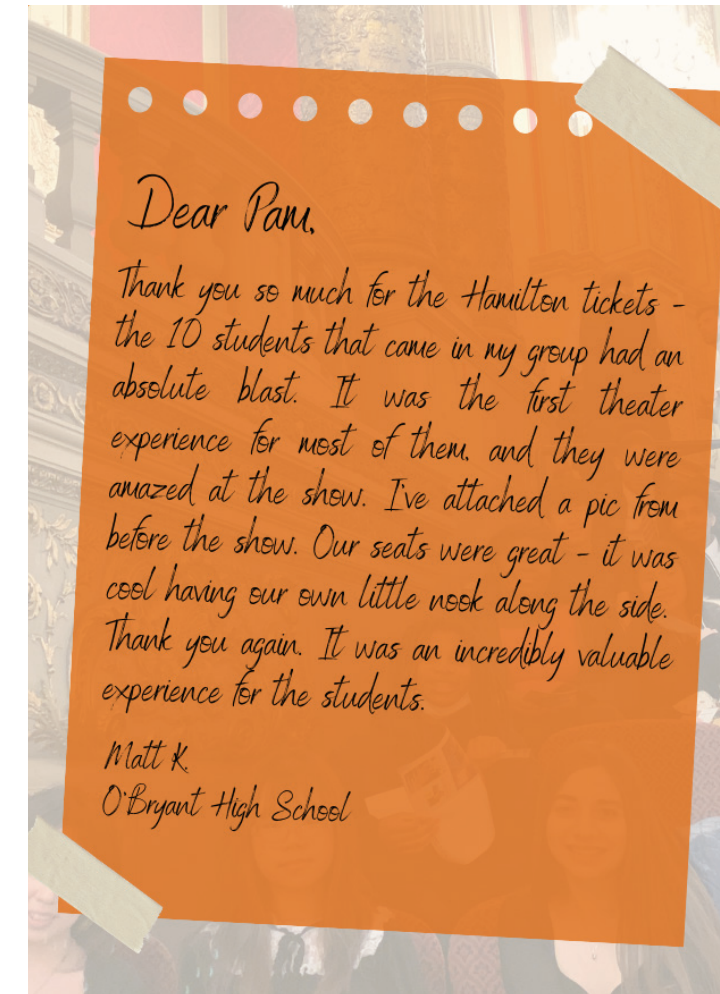 Dear Pam,
Thank you so much for the Hamilton tickets -
the 10 students that came in my group had an
absolute blast. It was the first theater
experience for most of them, and they were
amazed at the show. I've attached a pic from
before the show. Our seats were great - it was
cool having our own little nook along the side.
Thank you again. It was an incredibly valuable
experience for the students.
Matt K.
O'Bryant High School